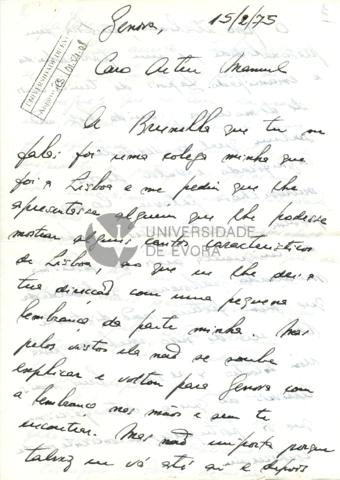 Genova, 15/2/75
Caro Artur Manuel
A Brunella que tu me
falas foi uma colega minha que
foi a Lisboa e me pediu que lhe
apresentasse alguem que lhe podesse
mostrar alguns cantos caracteristicos
de Lisboa, ao que eu lhe dei a
tua direcção com uma pequena
lembrança da parte minha. Mas
pelos vistos ela não se soube
explicar e voltou para Genova com
a lembrança nas mãos e sem te
encontrar. Mas não importa porque
talvez eu vá até aí e depois
UNIVERSIDADE
DE ÉVORA